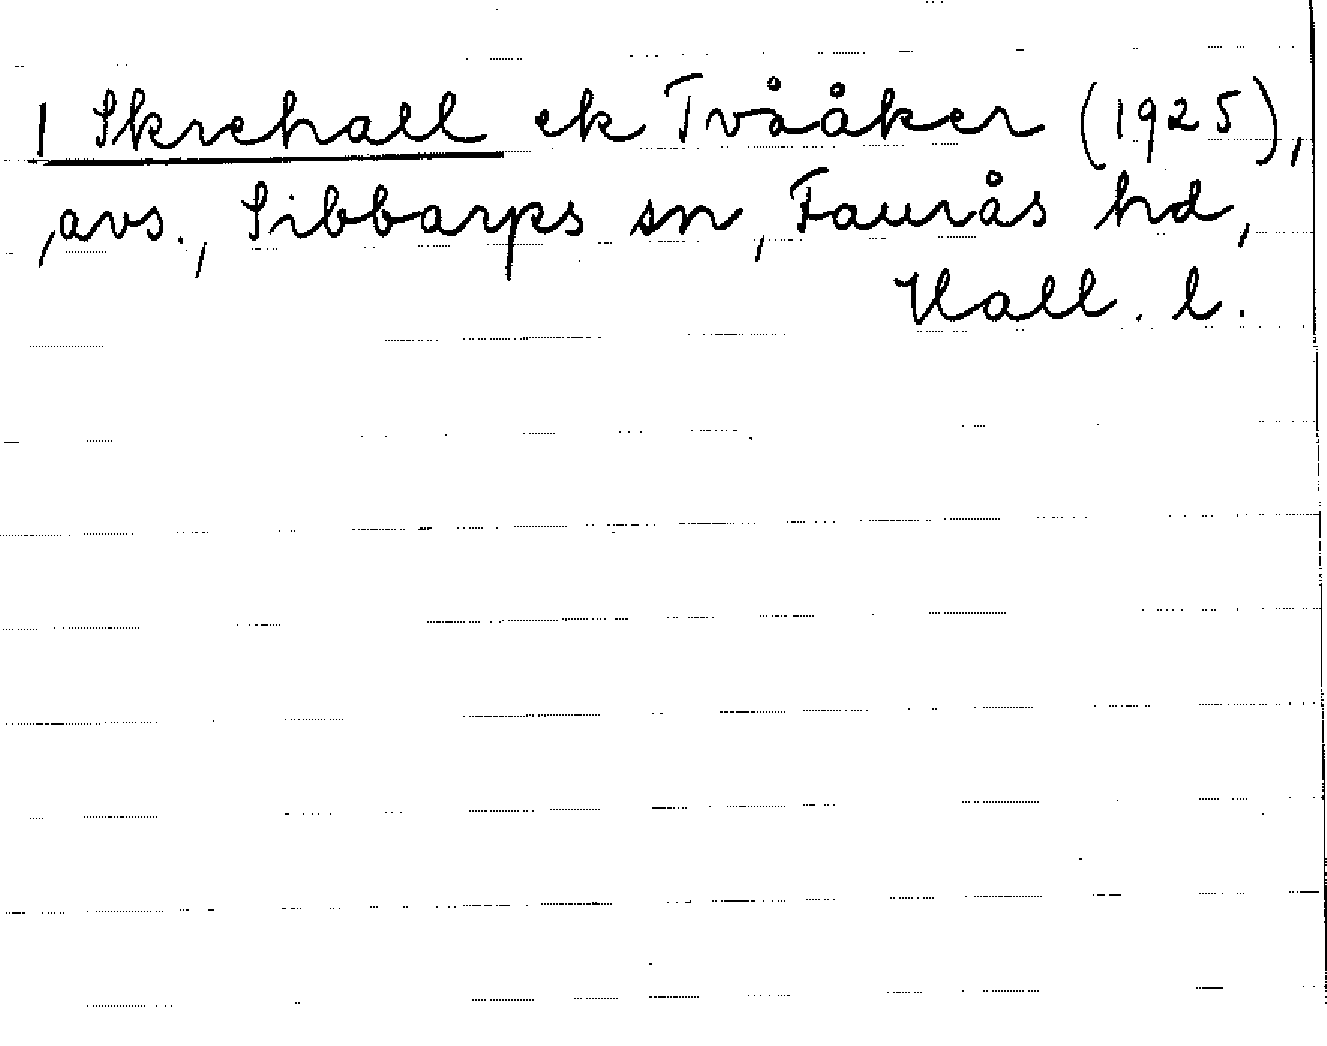 1 Skrehall ek Tvååker (1925),
, avs., Sibbarps sn, Faurås hd,
Hall. l.